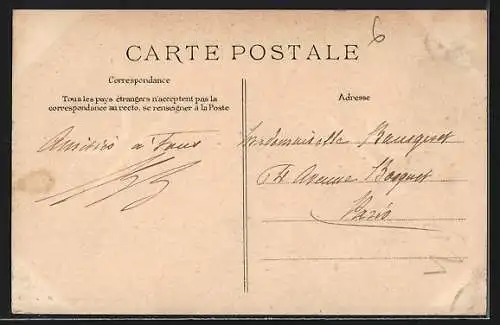 6
CARTE POSTALE
Correspondance
Tous les pays étrangers n'acceptent pas la
correspondance au recto, se renseigner à la Poste
Adresse
Amitiés à Tous
Mademoiselle
64 Avenue Bosquet
Paris